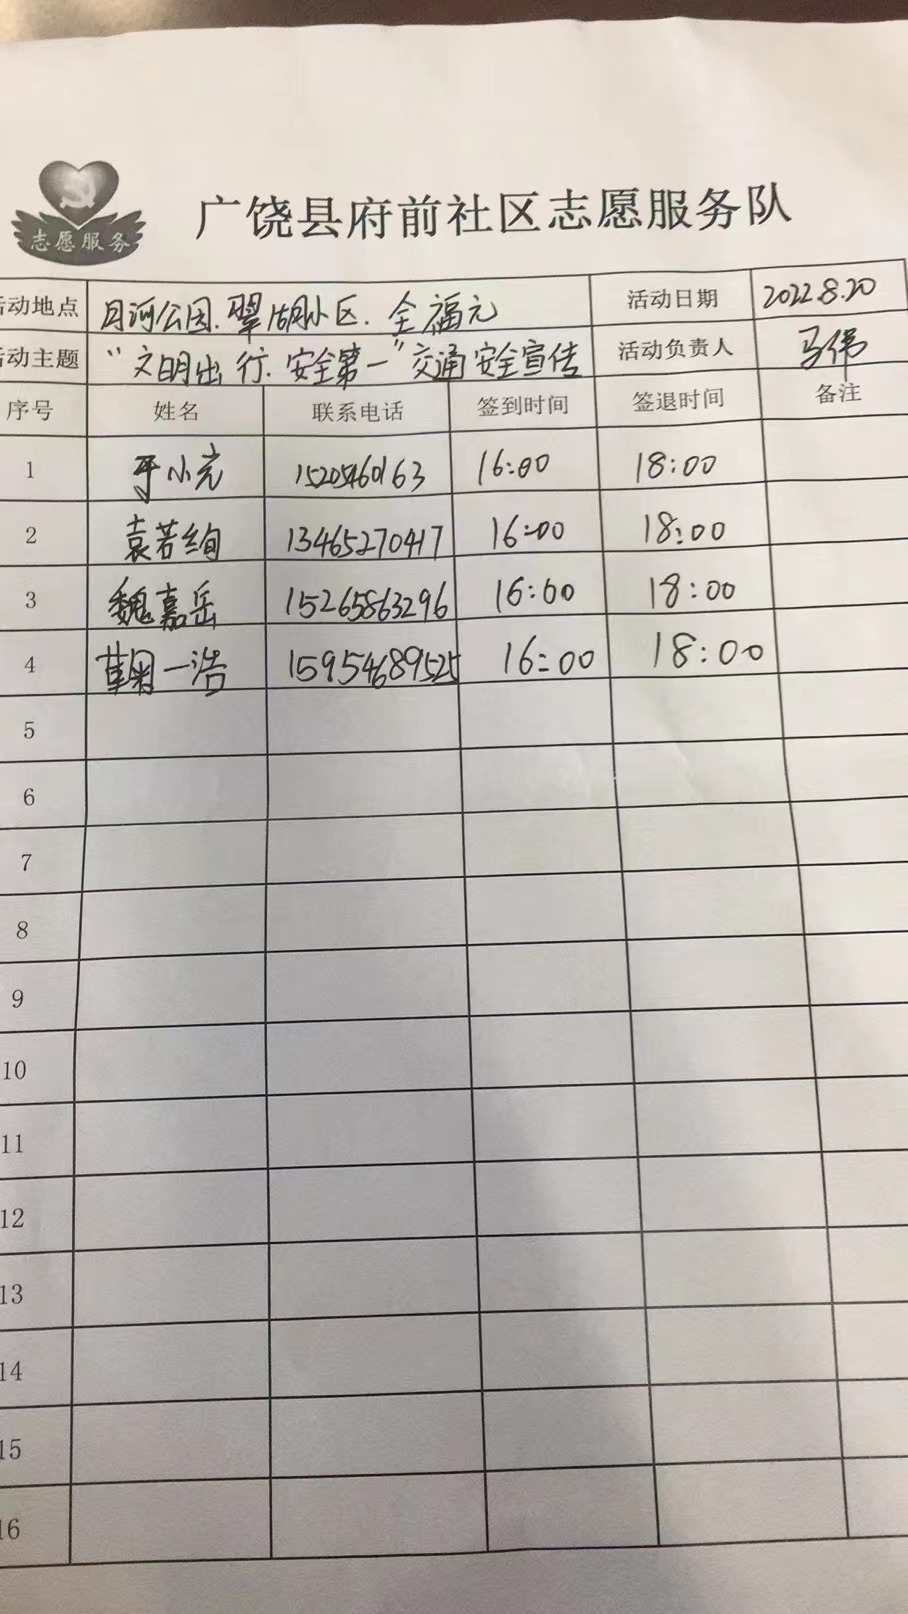 志愿服务
广饶县府前社区志愿服务队
活动地点 月河公园.翠湖小区.全福元 活动日期 2022.8.20
活动主题 “文明出行.安全第一”交通安全宣传 活动负责人 马伟
序号 姓名 联系电话 签到时间 签退时间 备注
1 于小元 15205460163 16:00 18:00
2 袁若绚 13465270417 16:00 18:00
3 魏嘉岳 15265863296 16:00 18:00
4 鞠一浩 15954689525 16:00 18:00
5
6
7
8
9
10
11
12
13
14
15
16